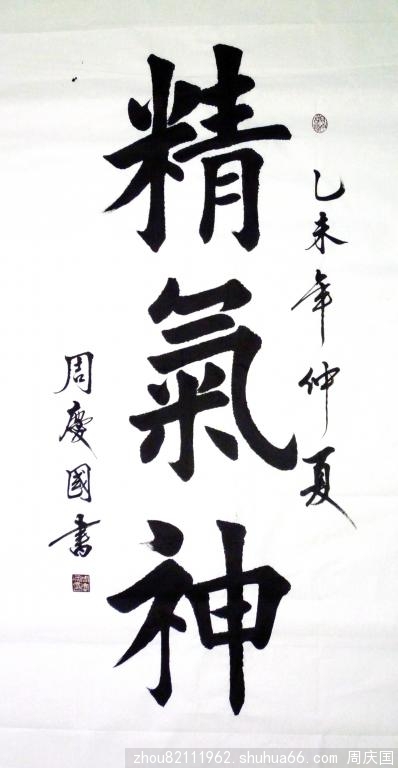 乙未年仲夏
精氣神
周慶國書
zhou82111962.shuhua66.com 周庆国